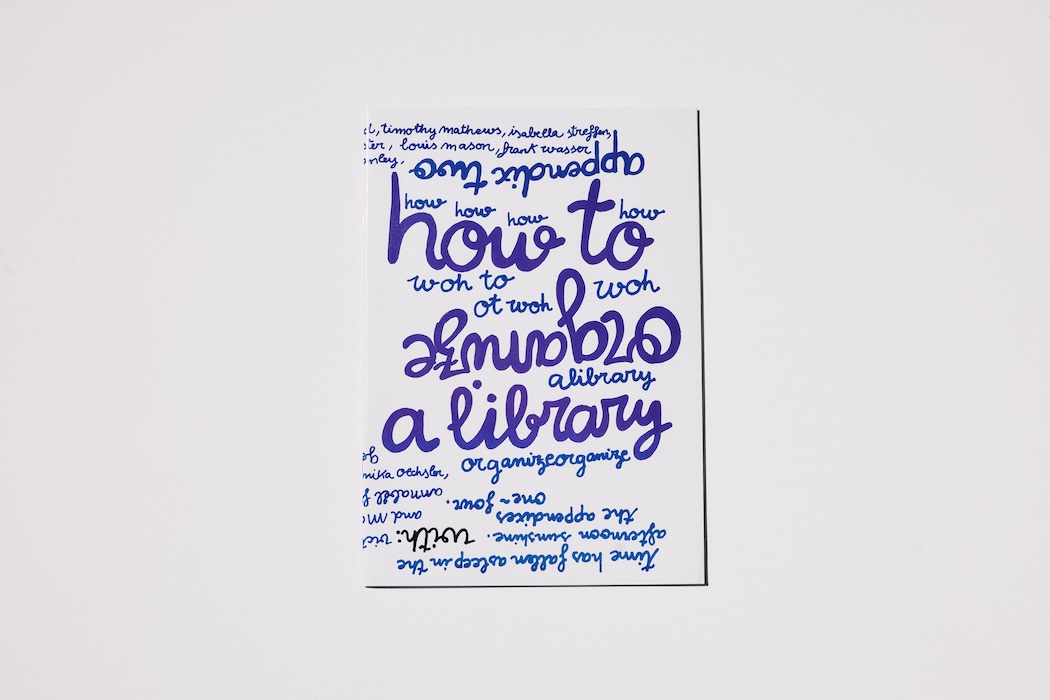 timothy mathews, isabella streffen,
louis mason, frank wasser
appendix two
how how how how
how to
woh to woh
ot woh
organize
a library
a library
organizeorganize
mika oechsler,
annabell
one~four.
and
the appendices
with:
afternoon sunshine.
time has fallen asleep in the